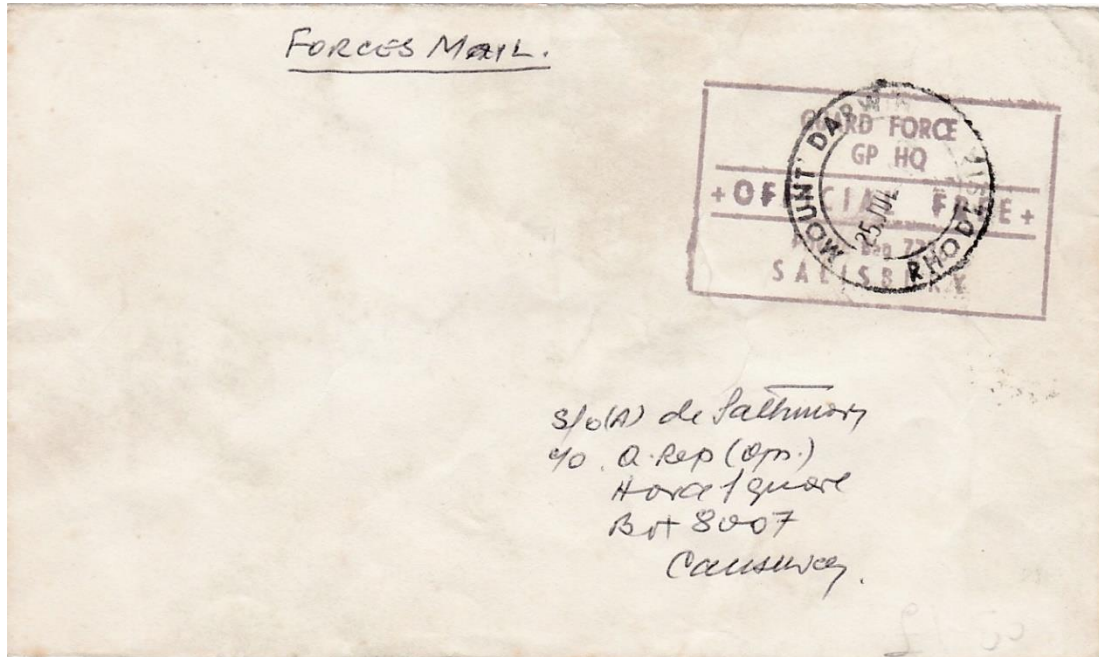 FORCES MAIL.
GUARD FORCE
GP HQ
+ OFFICIAL FREE +
SALISBURY
MOUNT DARWIN
25 JUL
RHODESIA
S/O(A) de
c/o. Q. Rep (Ops.)
Square
Box 8007
Causeway.